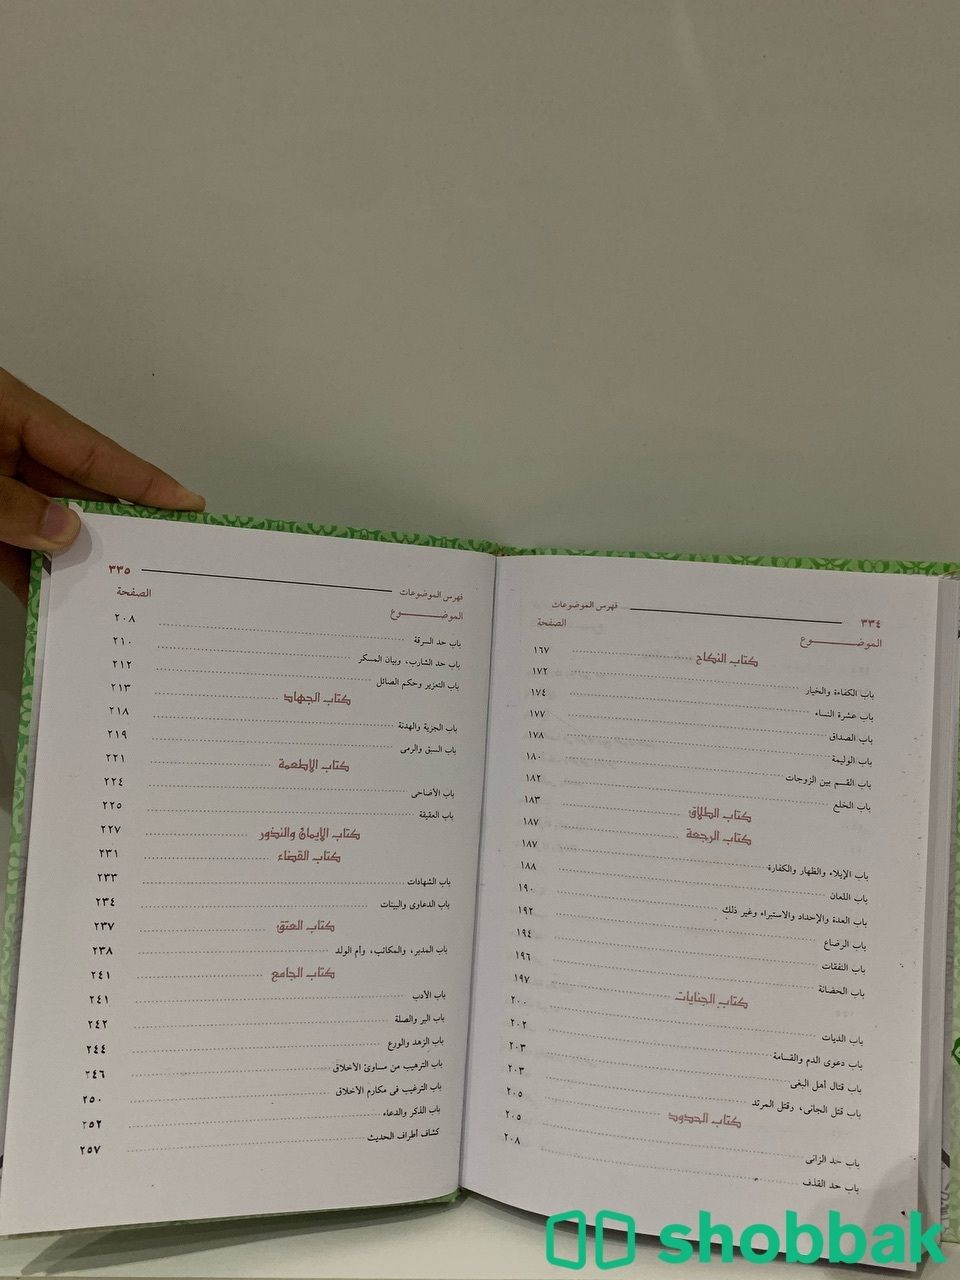 ٣٣٤ فهرس الموضوعات
الموضـــــــوع الصفحة
كتاب النكاح ١٦٧
باب الكفاءة والخيار ١٧٢
باب عشرة النساء ١٧٤
باب الصداق ١٧٧
باب الوليمة ١٧٨
باب القسم بين الزوجات ١٨٠
باب الخلع ١٨٢
كتاب الطلاق ١٨٣
كتاب الرجعة ١٨٧
باب الإيلاء والظهار والكفارة ١٨٧
باب اللعان ١٨٨
باب العدة والإحداد والاستبراء وغير ذلك ١٩٠
باب الرضاع ١٩٢
باب النفقات ١٩٤
باب الحضانة ١٩٦
كتاب الجنايات ١٩٧
باب الديات ٢٠٠
باب دعوى الدم والقسامة ٢٠٢
باب قتال أهل البغى ٢٠٣
باب قتل الجانى، وقتل المرتد ٢٠٣
كتاب الحدود ٢٠٥
باب حد الزانى ٢٠٥
باب حد القذف ٢٠٨
فهرس الموضوعات ٣٣٥
الموضـــــــوع الصفحة
باب حد السرقة ٢٠٨
باب حد الشارب، وبيان المسكر ٢١٠
باب التعزير وحكم الصائل ٢١٢
كتاب الجهاد ٢١٣
باب الجزية والهدنة ٢١٨
باب السبق والرمى ٢١٩
كتاب الأطعمة ٢٢١
باب الأضاحى ٢٢٤
باب العقيقة ٢٢٥
كتاب الأيمان والنذور ٢٢٧
كتاب القضاء ٢٣١
باب الشهادات ٢٣٣
باب الدعاوى والبينات ٢٣٤
كتاب العتق ٢٣٧
باب المدبر، والمكاتب، وأم الولد ٢٣٨
كتاب الجامع ٢٤١
باب الأدب ٢٤١
باب البر والصلة ٢٤٢
باب الزهد والورع ٢٤٤
باب الترهيب من مساوئ الأخلاق ٢٤٦
باب الترغيب فى مكارم الأخلاق ٢٥٠
باب الذكر والدعاء ٢٥٢
كشاف أطراف الحديث ٢٥٧
shobbak